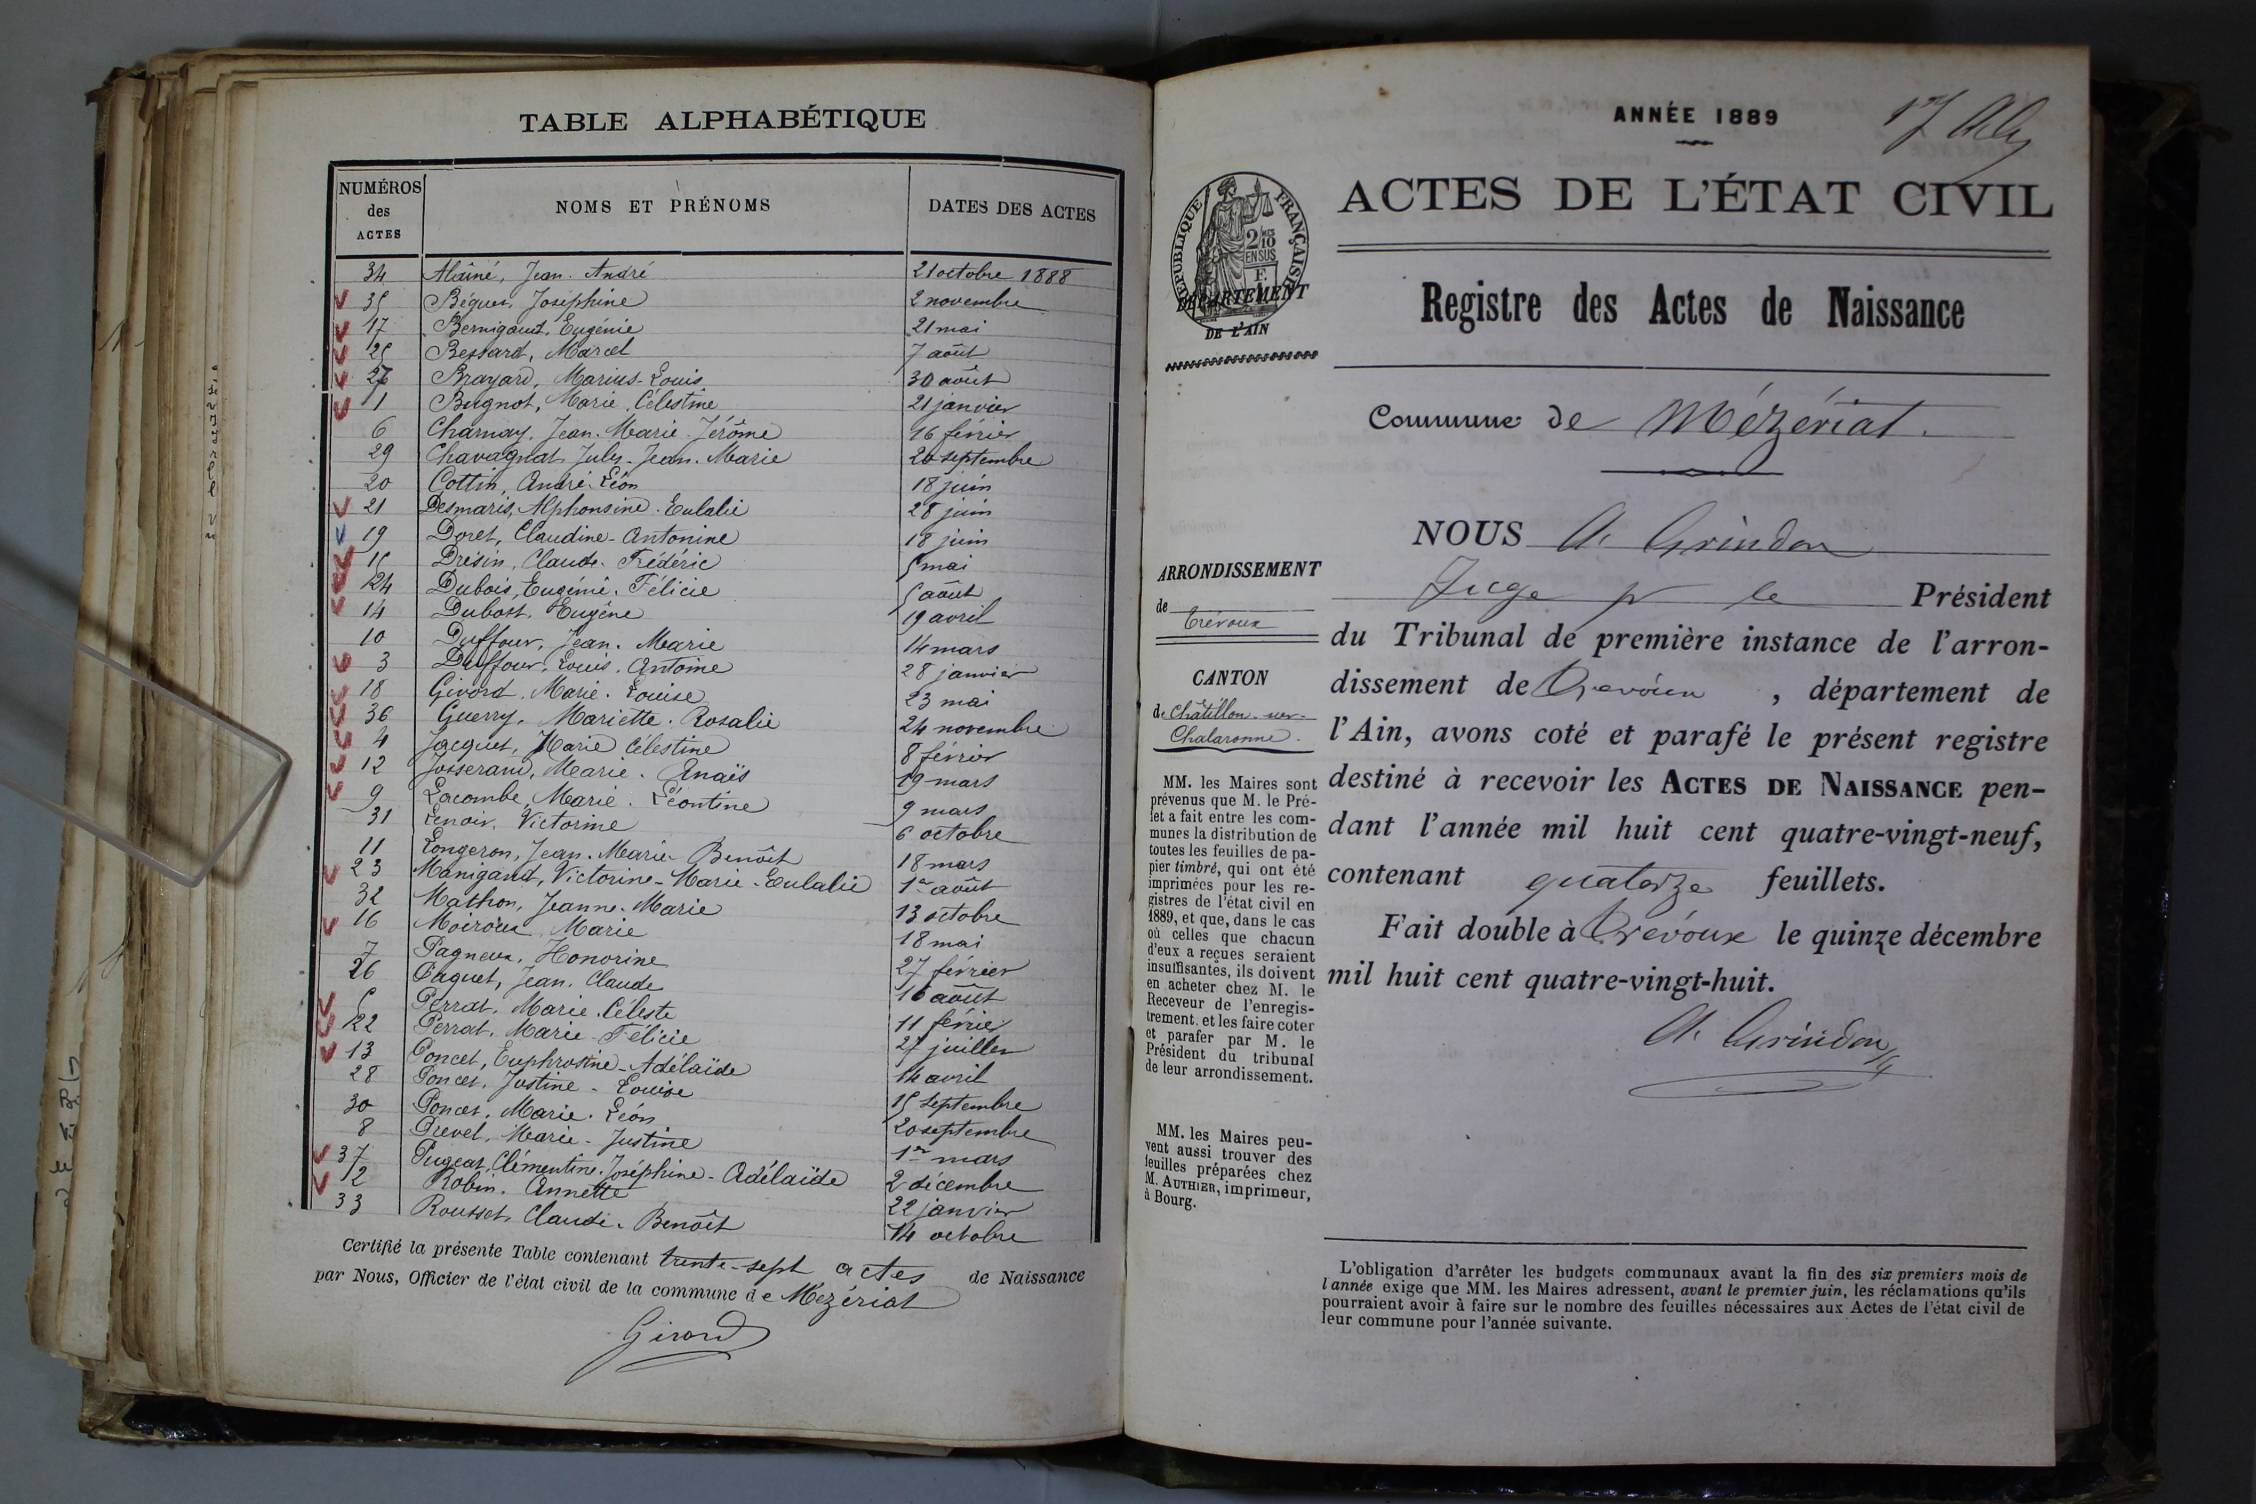 TABLE ALPHABÉTIQUE
NUMÉROS des ACTES NOMS ET PRÉNOMS DATES DES ACTES
34 Alainé, Jean André 21 octobre 1888
35 Béguet, Joséphine 2 novembre
17 Bernigaut, Eugénie 21 mai
25 Bessard, Marcel 7 août
27 Brayard, Marius-Louis 30 août
1 Bugnot, Marie Célestine 21 janvier
6 Charnay, Jean-Marie-Jérôme 16 février
29 Chavagnat, Jules-Jean-Marie 20 septembre
20 Cottin, André Léon 18 juin
21 Desmaris, Alphonsine-Eulalie 28 juin
19 Doret, Claudine-Antonine 18 juin
15 Drésin, Claude-Frédéric 5 mai
24 Dubois, Eugénie-Félicie 5 août
14 Dubost, Eugène 19 avril
10 Duffour, Jean-Marie 14 mars
3 Duffour, Louis-Antoine 28 janvier
18 Givord, Marie-Louise 23 mai
36 Guerry, Mariette-Rosalie 24 novembre
4 Jacquet, Marie Célestine 8 février
12 Josserand, Marie-Anaïs 29 mars
9 Lacombe, Marie-Léontine 9 mars
31 Lenoir, Victorine 6 octobre
11 Longeron, Jean-Marie-Benoît 18 mars
23 Manigand, Victorine-Marie-Eulalie 1er août
32 Mathon, Jeanne-Marie 13 octobre
16 Moiroux, Marie 18 mai
7 Pagneux, Honorine 27 février
26 Paquet, Jean-Claude 16 août
5 Perrat, Marie-Céleste 11 février
22 Perrat, Marie-Félicie 27 juillet
13 Poncet, Euphrosine-Adélaïde 14 avril
28 Poncet, Justine-Louise 15 septembre
30 Poncet, Marie-Léon 20 septembre
8 Prevel, Marie-Justine 1er mars
37 Pugeat, Clémentine-Joséphine-Adélaïde 2 décembre
2 Robin, Annette 22 janvier
33 Rousset, Claude-Benoît 14 octobre
Certifié la présente Table contenant trente-sept actes de Naissance
par Nous, Officier de l'état civil de la commune de Mézériat
Girord
ANNÉE 1889
ACTES DE L'ÉTAT CIVIL
RÉPUBLIQUE FRANÇAISE
2/10 EN SUS
DÉPARTEMENT
DE L'AIN
Registre des Actes de Naissance
Commune de Mézériat.
NOUS A. Grindon
Juge pr le Président
du Tribunal de première instance de l'arron-
dissement de Trévoux, département de
l'Ain, avons coté et parafé le présent registre
destiné à recevoir les ACTES DE NAISSANCE pen-
dant l'année mil huit cent quatre-vingt-neuf,
contenant quatorze feuillets.
Fait double à Trévoux le quinze décembre
mil huit cent quatre-vingt-huit.
A. Grindon
ARRONDISSEMENT
de Trévoux
CANTON
de Châtillon-sur-
Chalaronne.
MM. les Maires sont
prévenus que M. le Pré-
fet a fait entre les com-
munes la distribution de
toutes les feuilles de pa-
pier timbré, qui ont été
imprimées pour les re-
gistres de l'état civil en
1889, et que, dans le cas
où celles que chacun
d'eux a reçues seraient
insuffisantes, ils doivent
en acheter chez M. le
Receveur de l'enregis-
trement, et les faire coter
et parafer par M. le
Président du tribunal
de leur arrondissement.
MM. les Maires peu-
vent aussi trouver des
feuilles préparées chez
M. AUTHIER, imprimeur,
à Bourg.
L'obligation d'arrêter les budgets communaux avant la fin des six premiers mois de
l'année exige que MM. les Maires adressent, avant le premier juin, les réclamations qu'ils
pourraient avoir à faire sur le nombre des feuilles nécessaires aux Actes de l'état civil de
leur commune pour l'année suivante.